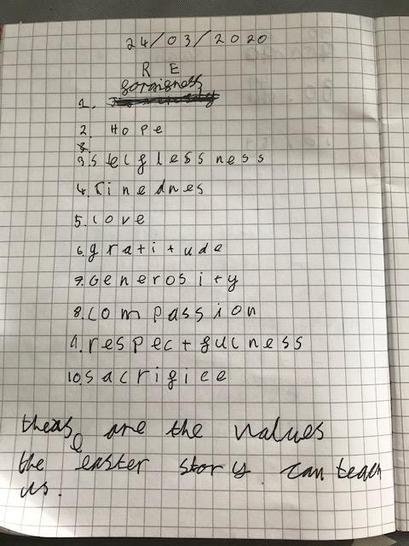 24/03/2020
R E
1. gorrigness
2. Hope
3. selglessness
4. kinednes
5. love
6. gratitude
7. Generosity
8. compassion
9. respectgulness
10. sacrigice
theas e are the values
the easter story can teach
us.